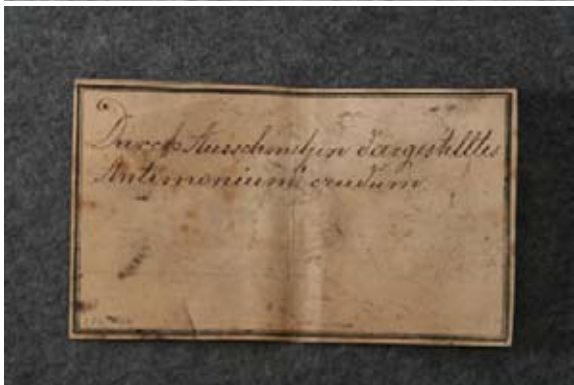 Durch Ausschmelzen dargestelltes
Antimonium crudum